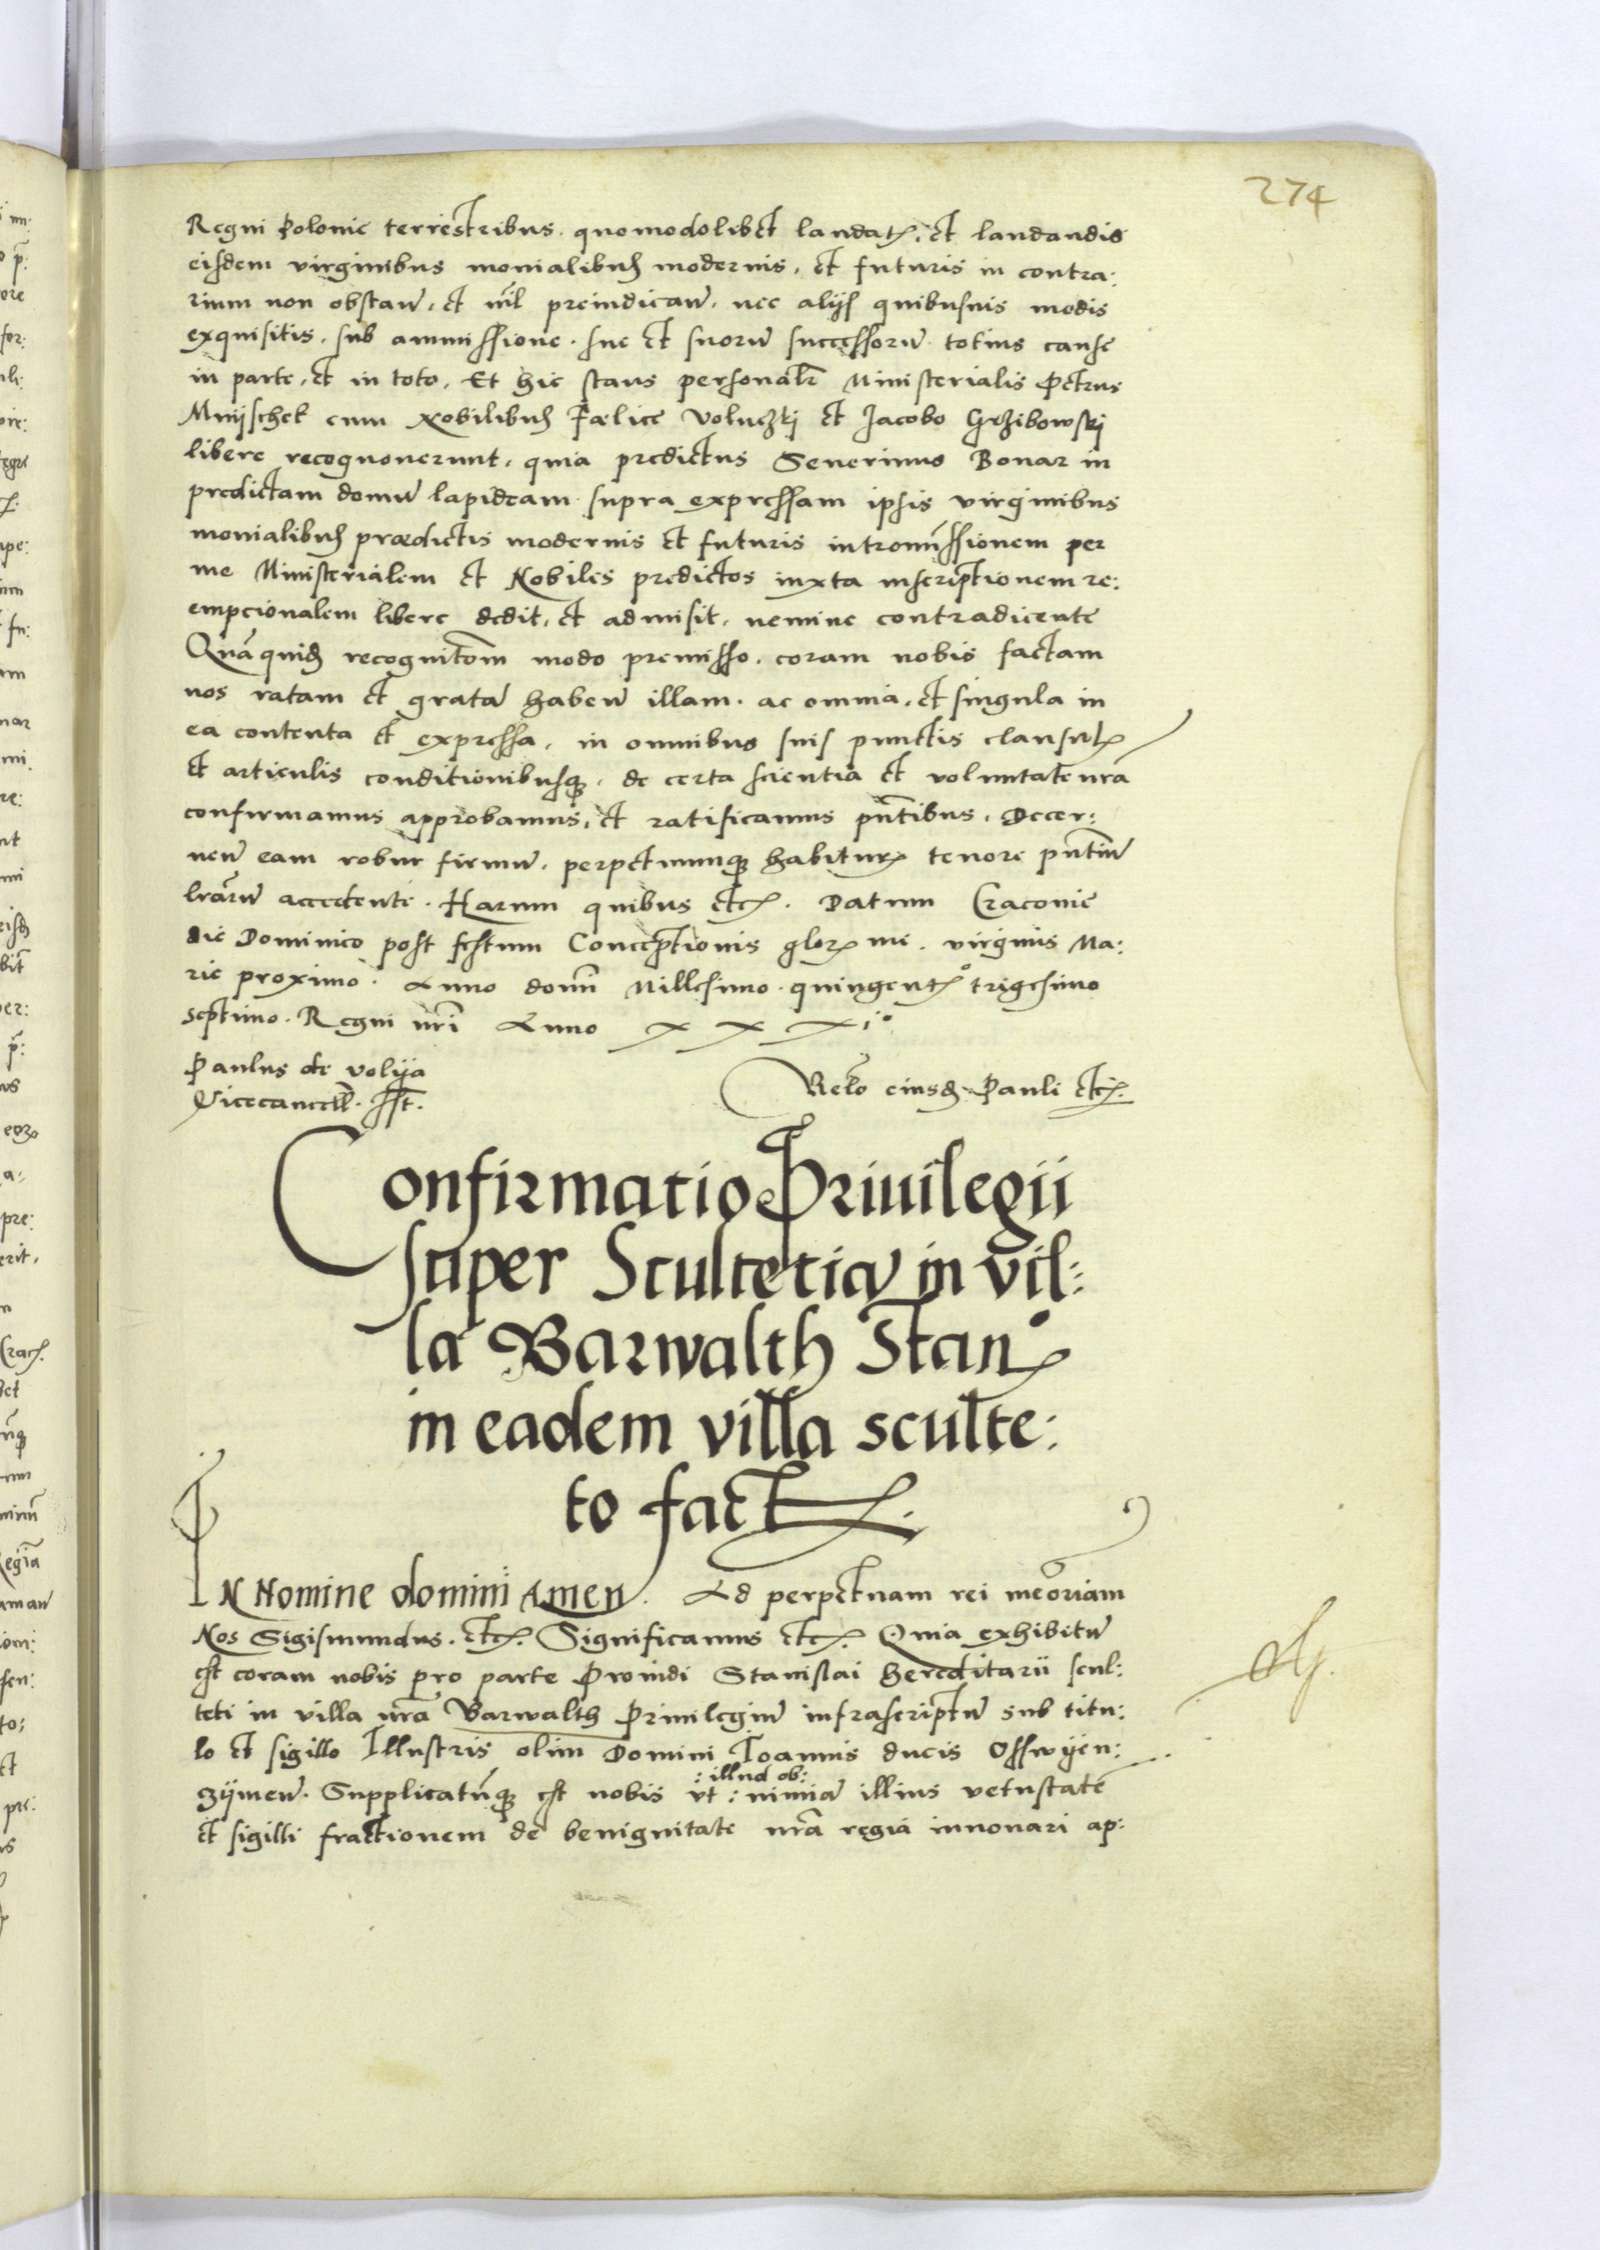 274
Regni Polonie terrestribus. quomodolibet laudat. et laudandis
eisdem virginibus monialibus modernis. et futuris in contra:
rium non obstan̄. et nīl preiudican̄. nec alijs quibusuis modis
exquisitis. sub ammissione. sue et suorū successorū totius cause
in parte. et in toto. Et hic stans personalr̄ Ministerialis Petrus
Mnijschek cum Nobilibus Fælice Voluczkj et Jacobo Grzibowskj
libere recognouerunt. quia predictus Seuerinus Bonar in
predictam domū lapideam supra expressam ipsis virginibus
monialibus prædictis modernis et futuris intromissionem per
me Ministerialem et Nobiles predictos iuxta inscriptionem re:
empcionalem libere dedit. et admisit. nemine contradicente
Quā quid recognitoēm modo premisso. coram nobis factam
nos ratam et gratā haben̄ illam. ac omnia. et singula in
ea contenta et expressa. in omnibus suis punctis clausul
et articulis conditionibusq. de certa scientia et voluntate nrā
confirmamus approbamus. et ratificamus pn̄tibus. Decer:
nen̄ eam robur firmū. perpetuumq habitur tenore pn̄tiū
lrārū accedente. Harum quibus etc. Datum Cracouie
die Dominico post festum Conceptionis glorme. virginis Ma:
rie proximo. Anno domī Millesimo. quingent° trigesimo
septimo. Regni nrī Anno xxxi°
Paulus de Volija
Vicecancell. sst.
Relo eiusd Pauli etc.
Confirmatio Priuilegii
super Scultetiā in vil:
la Barwalth Stan°
in eadem villa sculte:
to fact.
IN Nomine domini Amen. Ad perpetuam rei meōriam
Nos Sigismundus. etc. Significamus etc. Quia exhibitū
est coram nobis pro parte Prouidi Stanislai hereditarii scul:
teti in villa nrā Barwalth Priuilegiū infrascriptū sub titu:
lo et sigillo Illustris olim Domini Ioannis ducis Osswijen:
zijmen̄. Supplicatūq est nobis vt : nimiā illius vetustatē
: illud ob:
et sigilli fractionem de benignitate nrā regia innouari ap: